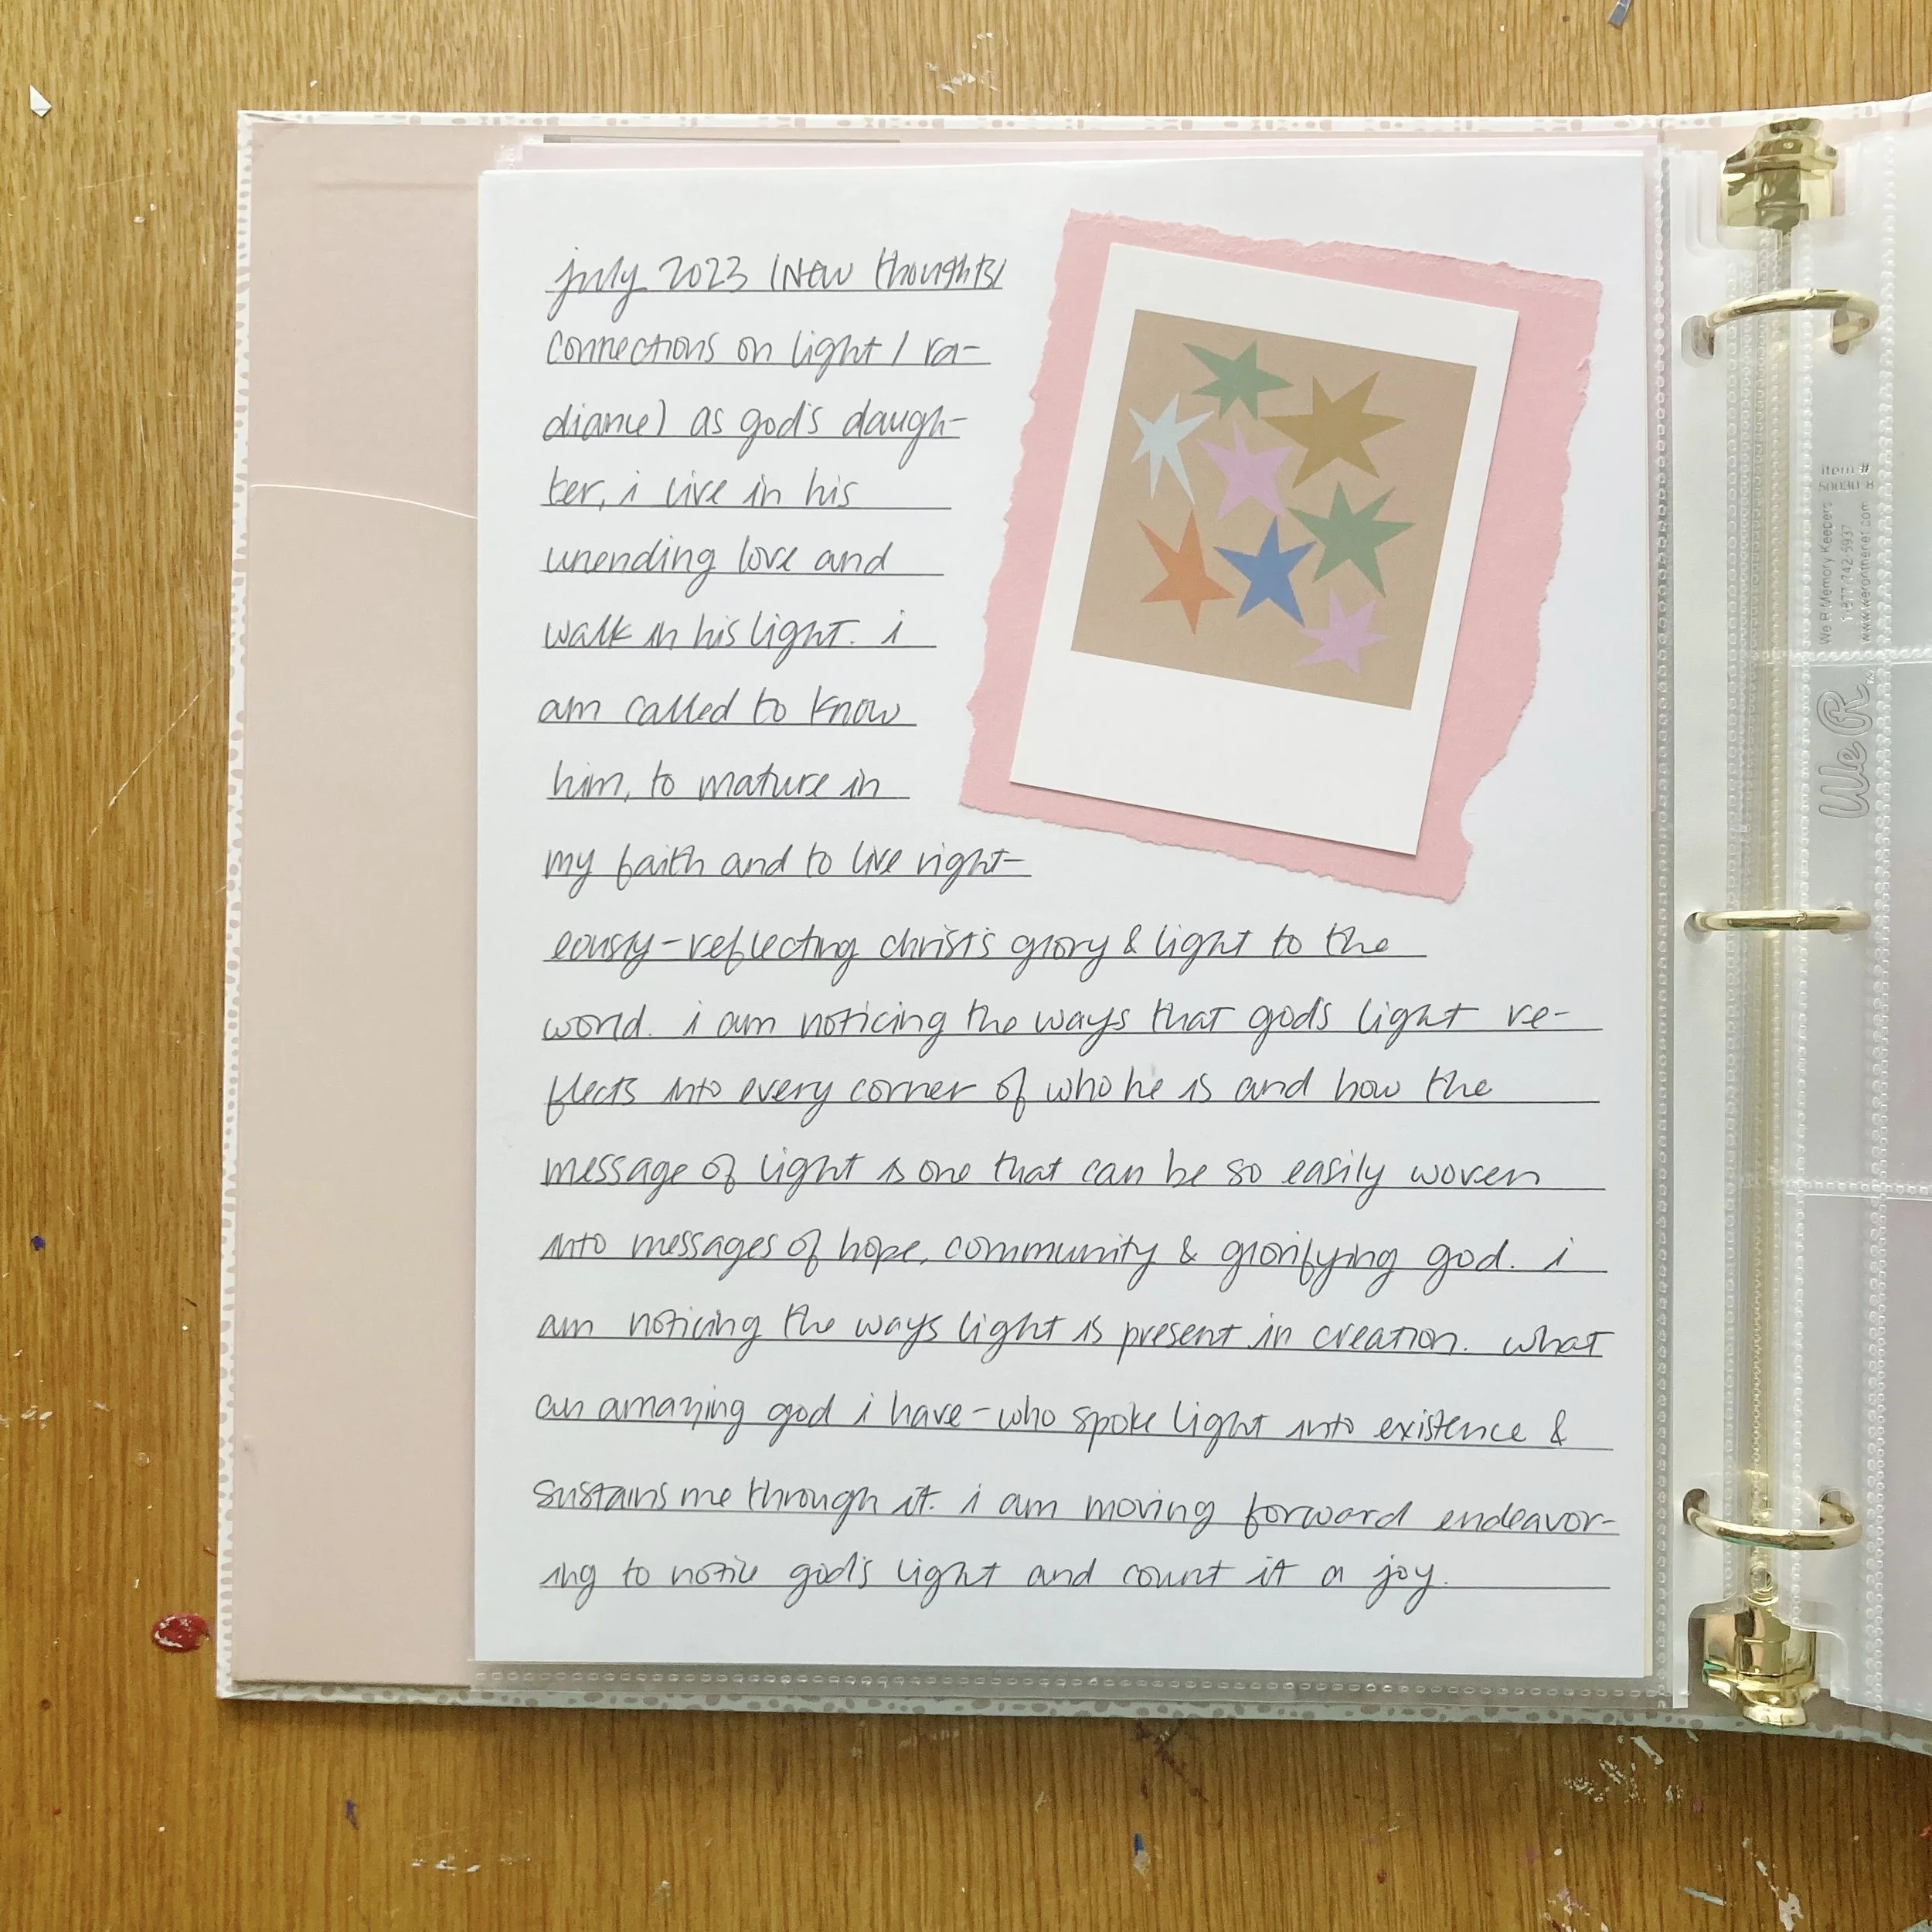 july 2023 (New thoughts/
connections on light / ra-
diance) as god's daugh-
ter, i live in his
unending love and
walk in his light. i
am called to know
him, to mature in
my faith and to live right-
eously-reflecting christ's glory & light to the
world. i am noticing the ways that god's light re-
flects into every corner of who he is and how the
message of light is one that can be so easily woven
into messages of hope, community & glorifying god. i
am noticing the ways light is present in creation. what
an amazing god i have - who spoke light into existence &
sustains me through it. i am moving forward endeavor-
ing to notice god's light and count it a joy.
Item #
We R Memory Keepers
We R